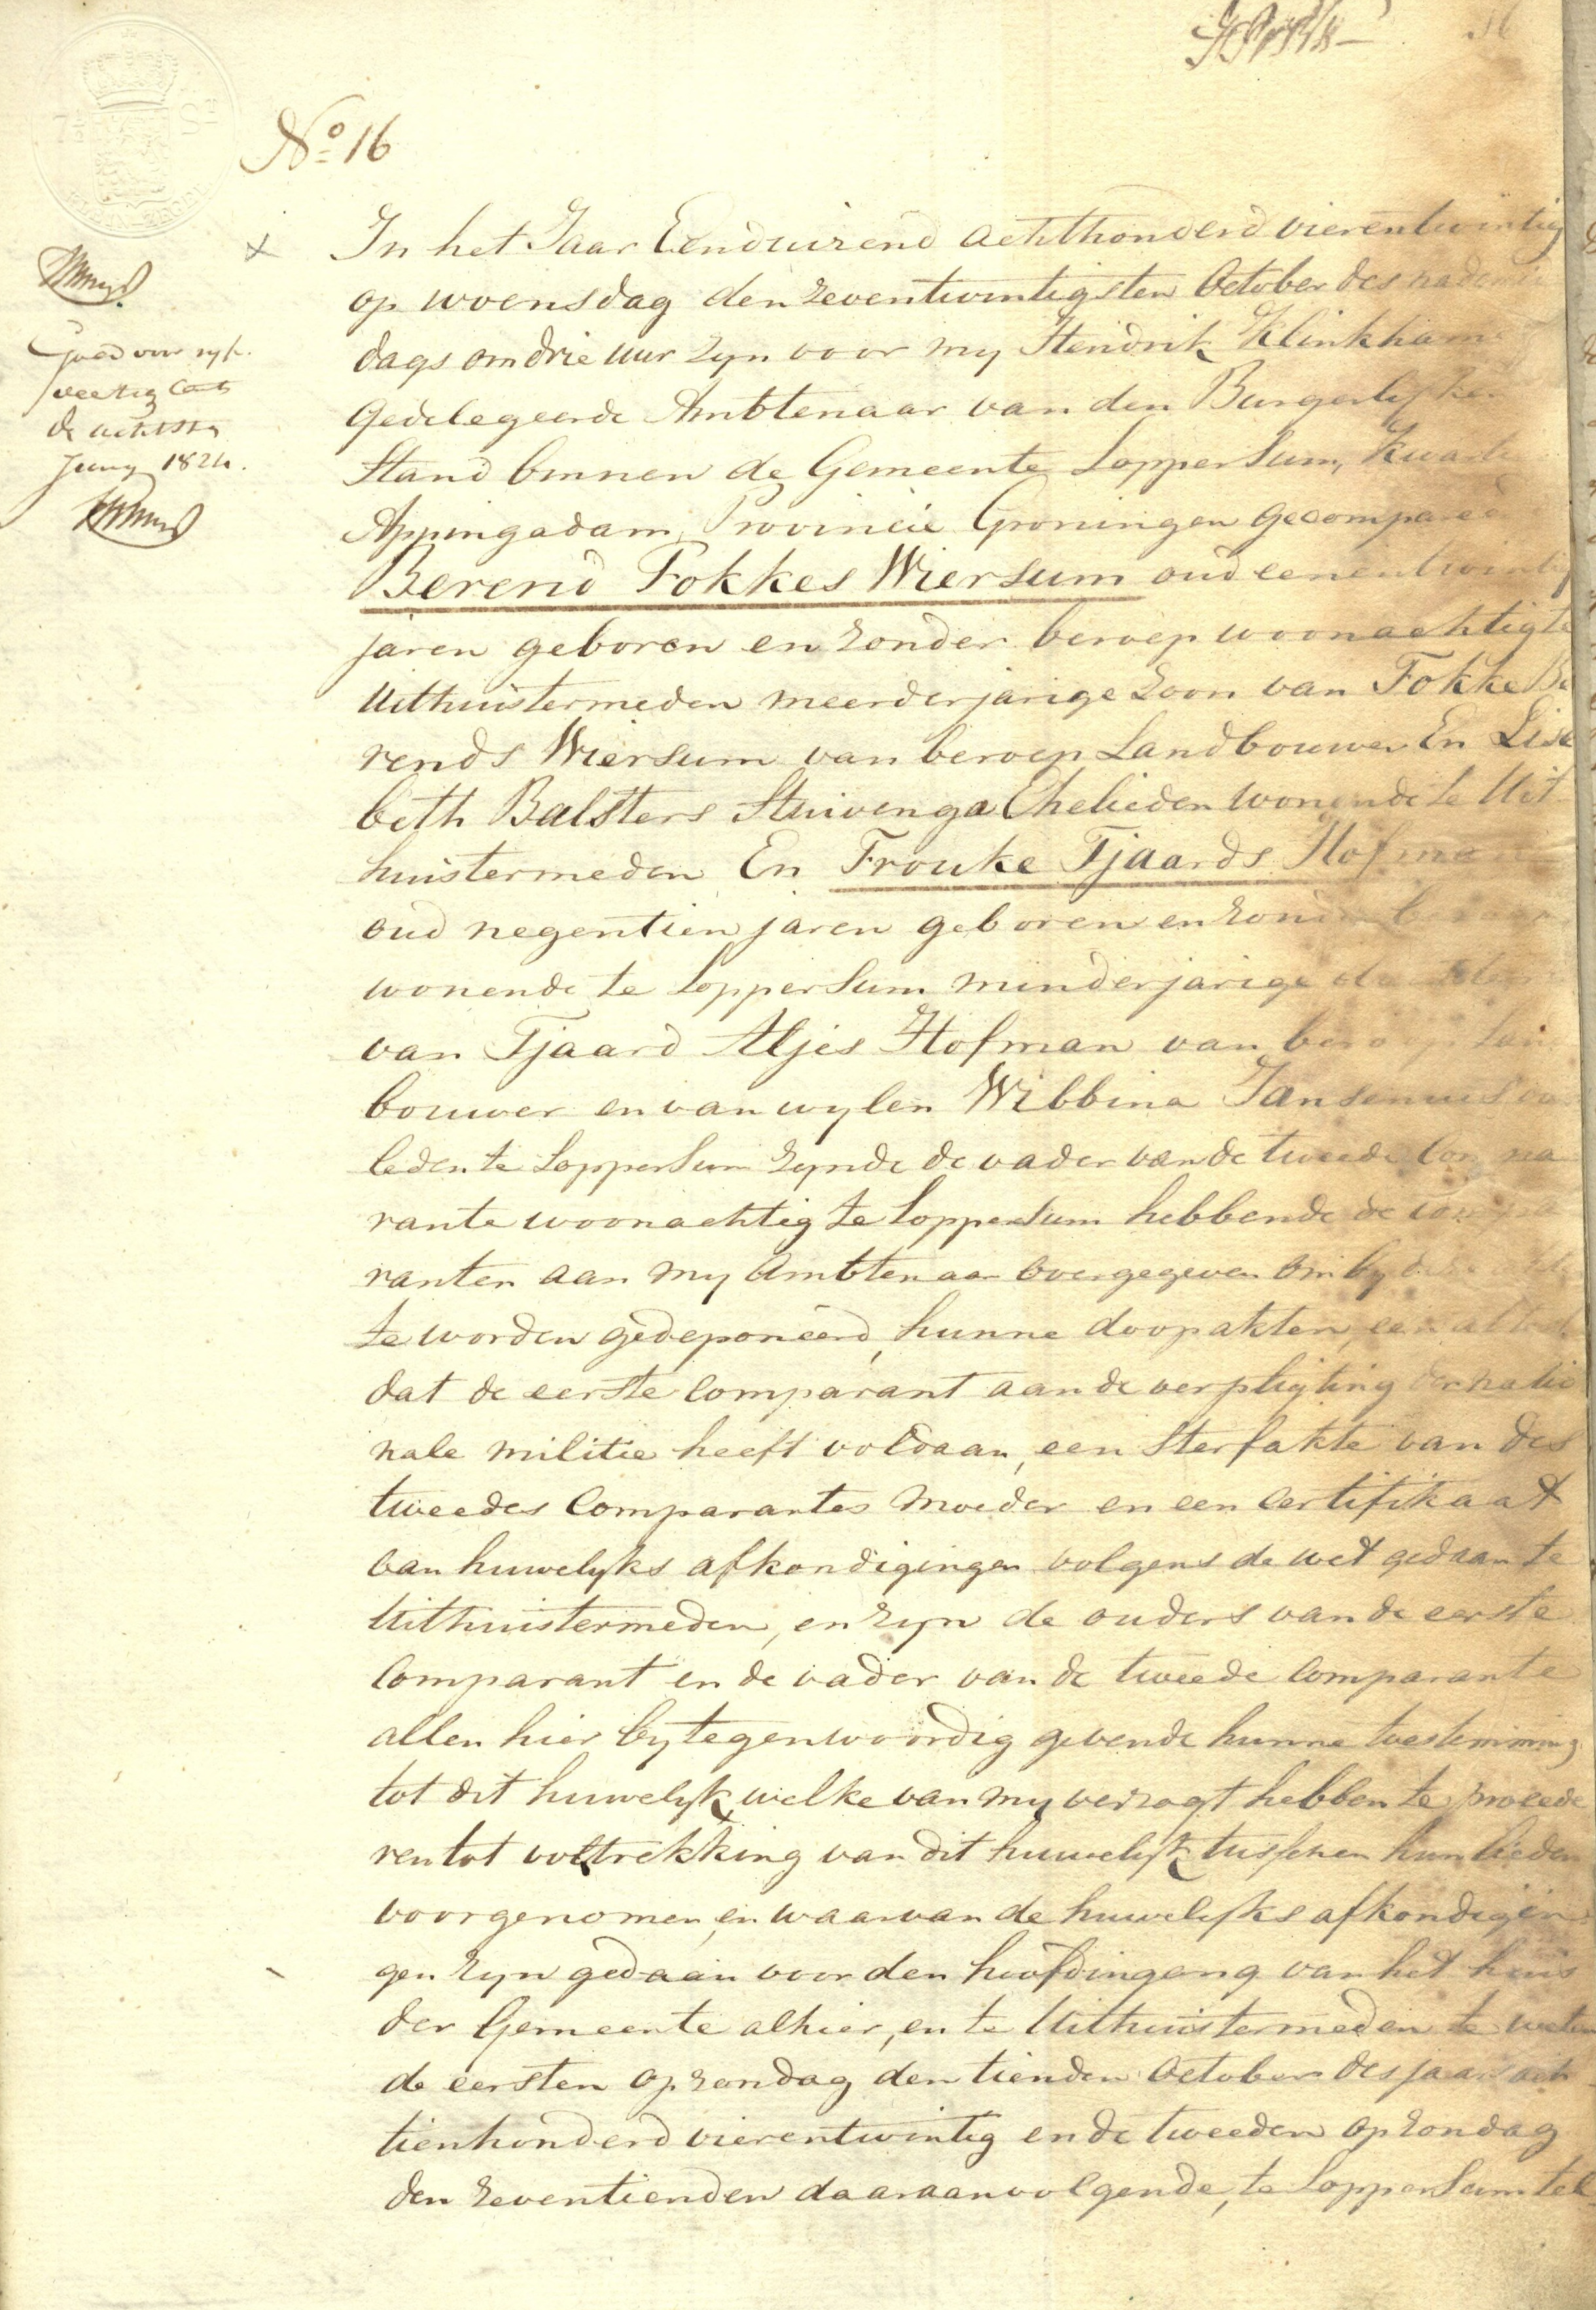 No 16
In het Jaar Eenduizend achthonderd vierentwintig
op woensdag den zeventwintigsten October des nadem
dags om drie uur zyn voor my Hendrik Klinkham
Gedelegeerde Ambtenaar van den Burgerlyken
Stand binnen de Gemeente Loppersum, Kwart
Appingadam, Provincie Groningen gecompareerd
Berend Fokkes Wiersum oud eenentwintig
jaren geboren en zonder beroep woonachtig te
Uithuistermeden meerderjarige zoon van Fokke Be
rends Wiersum van beroep Landbouwer En Lisa
beth Balsters Stuivenga Ehelieden wonende te Uit
huistermeden En Frouke Tjaards Hofma
oud negentien jaren geboren en zonder beroep
wonende te Loppersum minderjarige dochter
van Tjaard Aljes Hofman van beroep Lan
bouwer en van wylen Wibbina Jansenius ov
leden te Loppersum zynde de vader van de tweede Compa
rante woonachtig te Loppersum hebbende de compa
ranten aan my Ambtenaar overgegeven om by
te worden gedeponeerd, hunne doopakten, een
dat de eerste Comparant aan de verpligting der natio
nale militie heeft voldaan, een Sterfakte van des
tweedes Comparantes moeder en een certifikaat
van huwelyks afkondigingen volgens de wet gedaan te
Uithuistermeden, en zyn de ouders van de eerste
Comparant en de vader van de tweede Comparante
allen hier by tegenwoordig gevende hunne toestemming
tot dit huwelyk, welke van my verzogt hebben te procede
ren tot voltrekking van dit huwelyk tusschen hun lieden
voorgenomen, en waarvan de huwelyks afkondigin
gen zyn gedaan voor den hoofdingang van het huis
der Gemeente alhier, en te Uithuistermeden te weten
de eersten op zondag den tienden October des jaars ach
tienhonderd vierentwintig en de tweeden op zondag
den zeventienden daaraanvolgende, te Loppersum tel
Goed voor
veertig Cents
de achtste
Juny 1824.